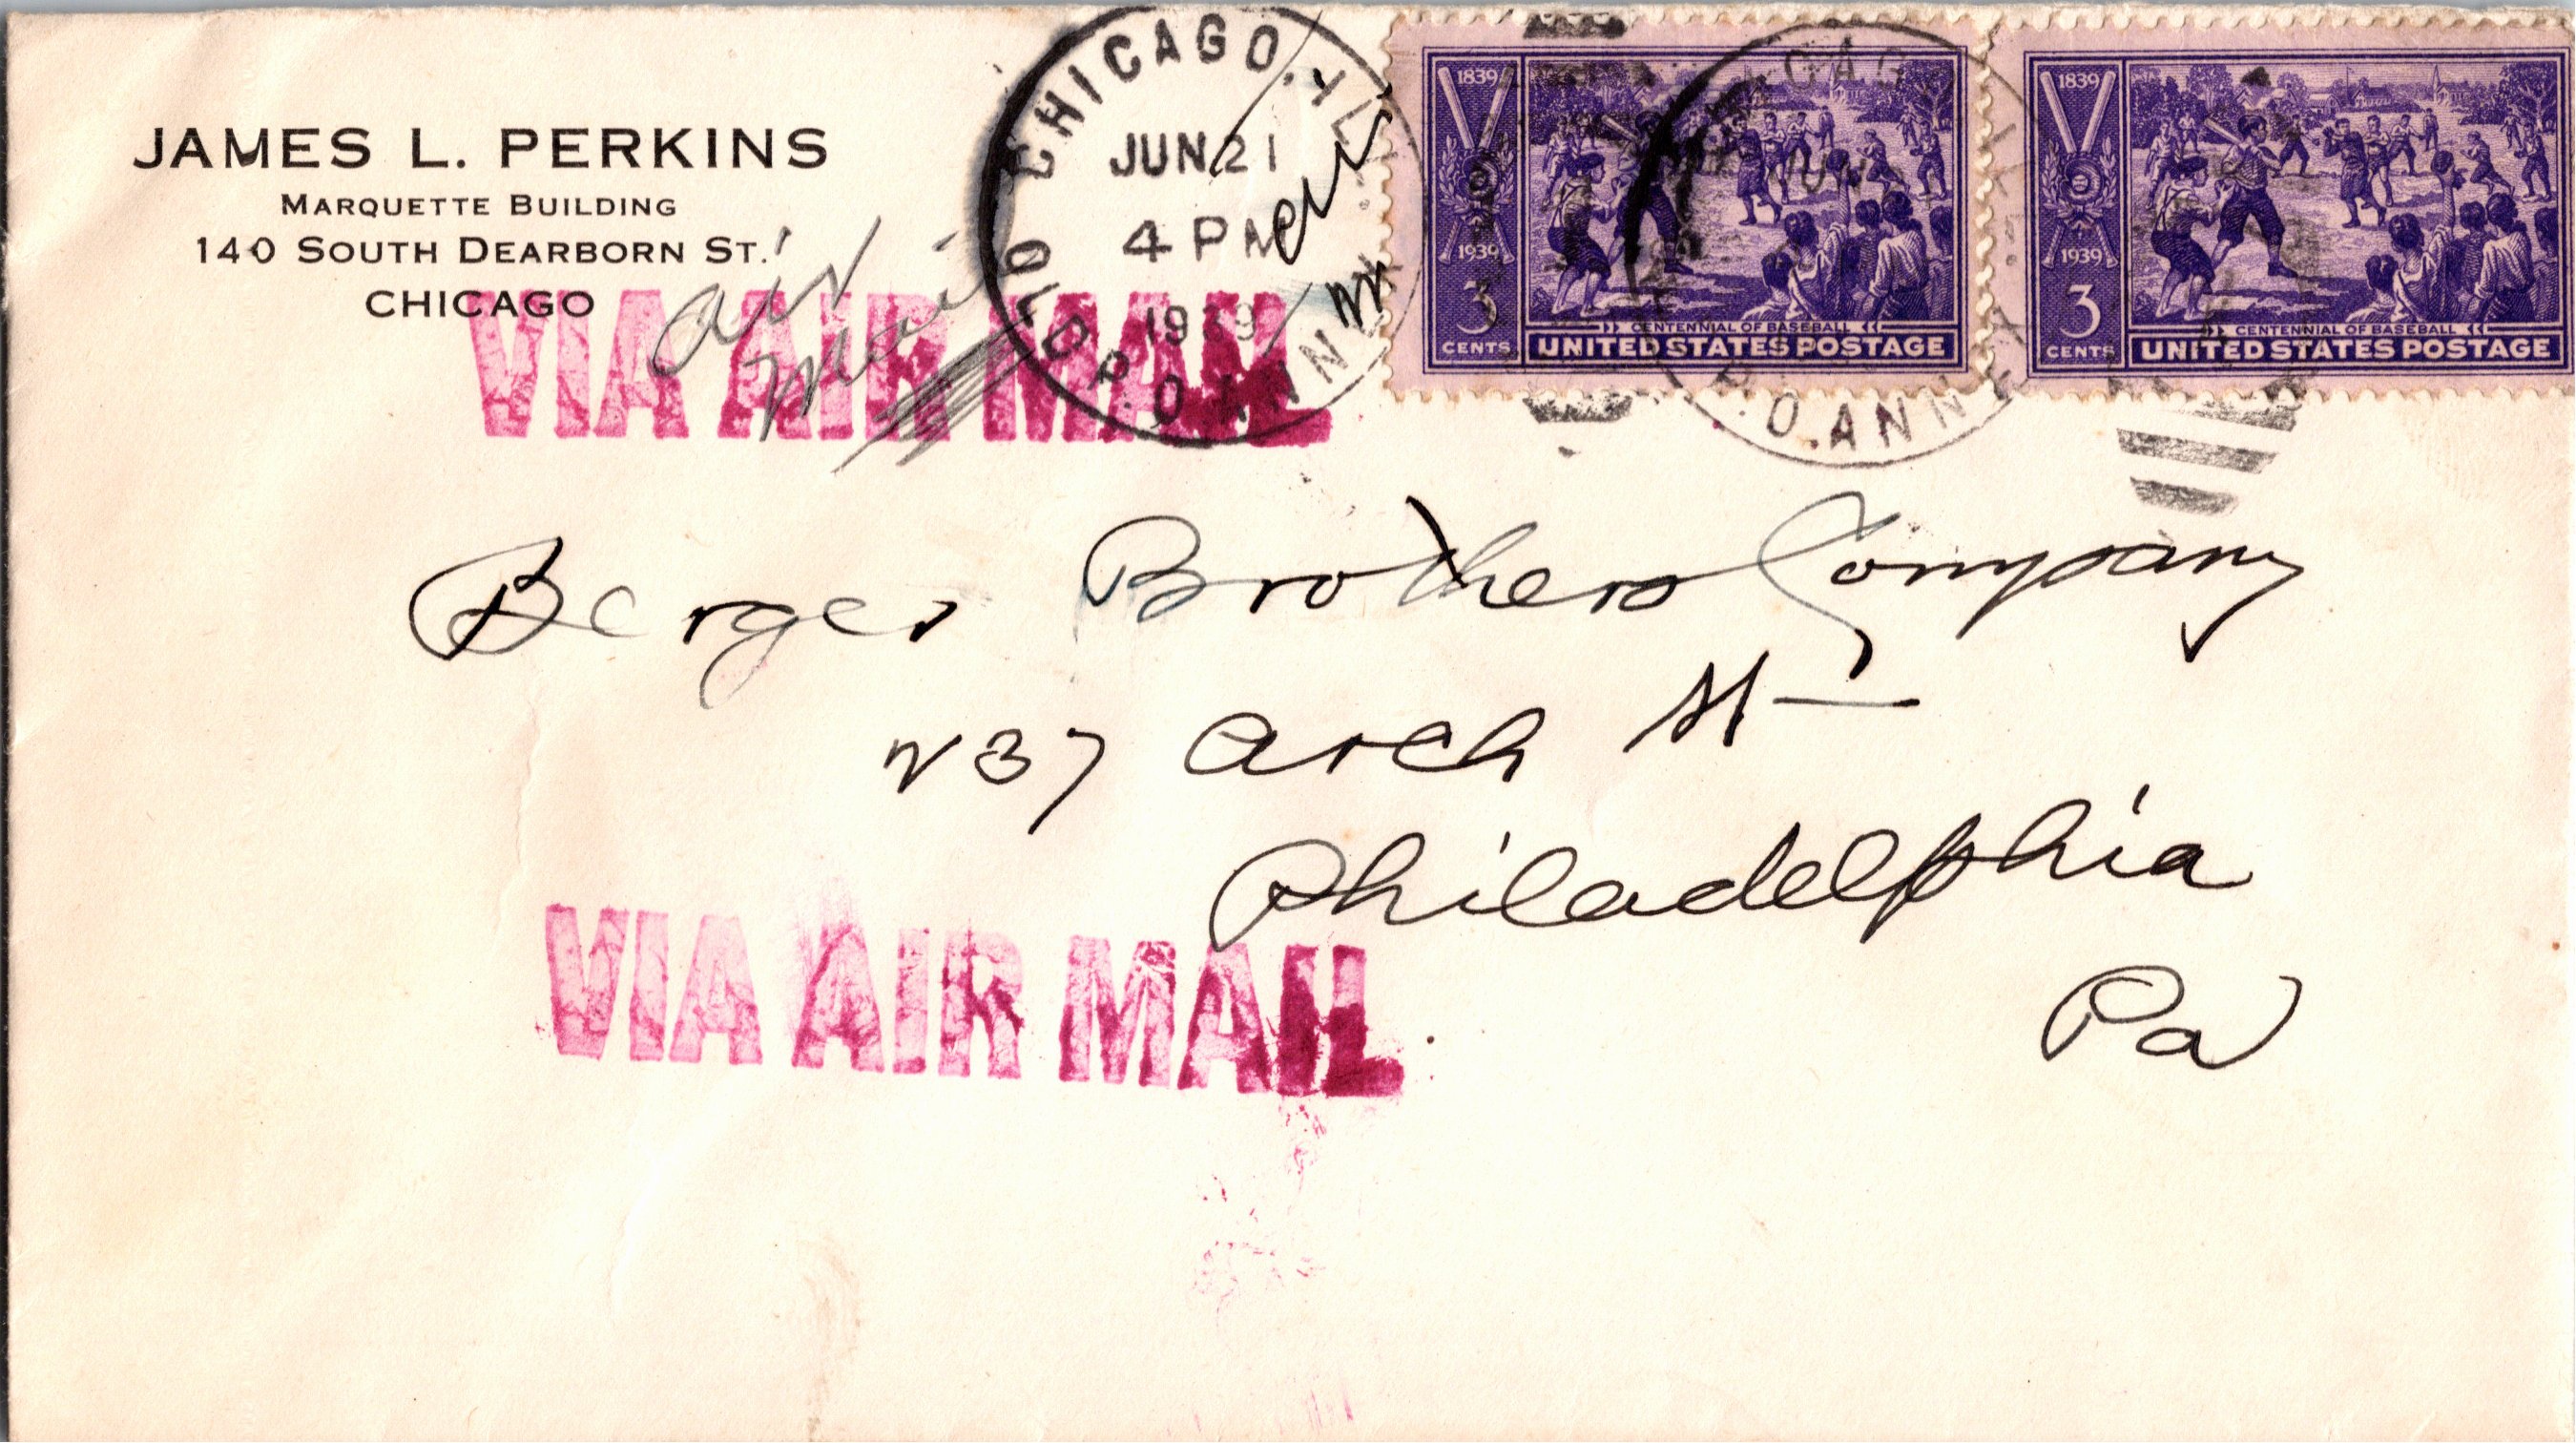 JAMES L. PERKINS
MARQUETTE BUILDING
140 SOUTH DEARBORN ST.
CHICAGO
air
Mail
VIA AIR MAIL
CHICAGO, ILL.
JUN 21
4 PM
1939
OLD P.O. ANNEX
air
1839
1939
3
CENTS
CENTENNIAL OF BASEBALL
UNITED STATES POSTAGE
CHICAGO
JUN
P.O. ANNEX
1839
1939
3
CENTS
CENTENNIAL OF BASEBALL
UNITED STATES POSTAGE
Berger Brothers Company
237 Arch St
Philadelphia
Pa
VIA AIR MAIL